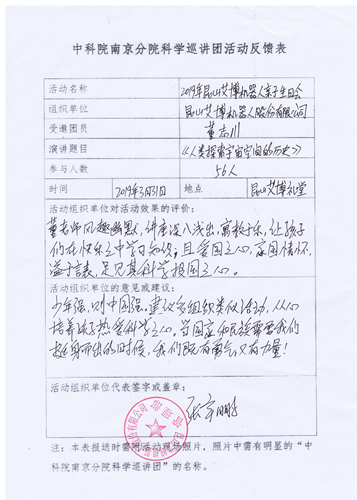 中科院南京分院科学巡讲团活动反馈表
活动名称 2019年昆山艾博机器人亲子生日会
组织单位 昆山艾博机器人股份有限公司
受邀团员 董志川
演讲题目 《人类探索宇宙空间的历史》
参与人数 56人
时间 2019年3月31日 地点 昆山艾博礼堂
活动组织单位对活动效果的评价:
董老师风趣幽默,讲座深入浅出,寓教于乐,让孩子
们在快乐之中学习知识;且爱国之心,家国情怀,
溢于言表,足见其科学报国之心。
活动组织单位的意见或建议:
少年强,则中国强,建议多组织类似活动,从小
培养孩子热爱科学之心,当国家和民族需要我们
挺身而出的时候,我们既有勇气又有力量!
活动组织单位代表签字或盖章:
注:本表报送时需附活动现场照片,照片中需有明显的“中
科院南京分院科学巡讲团”的名称。